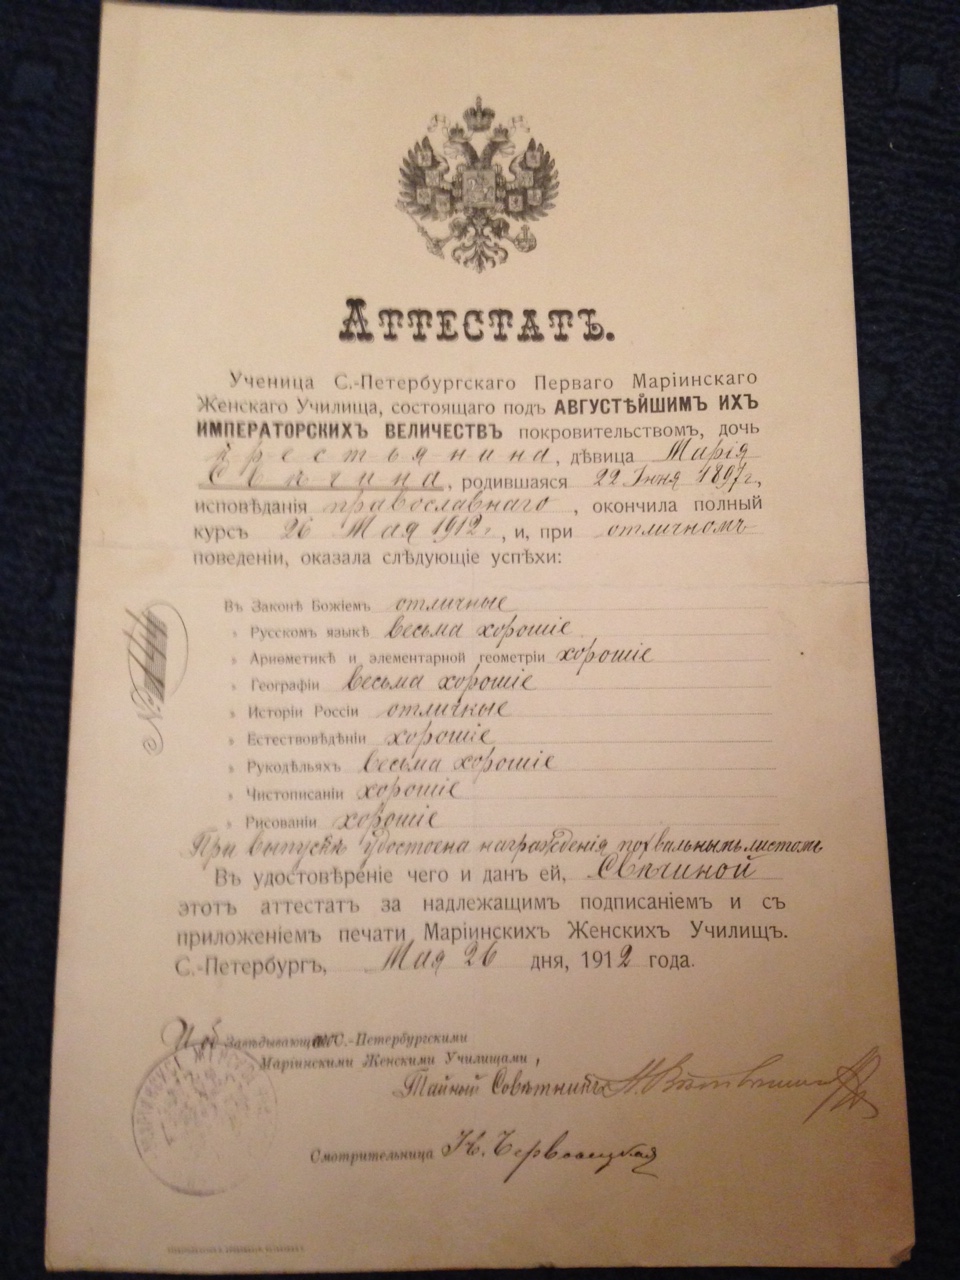 Аттестатъ.
Ученица С.-Петербургскаго Перваго Маріинскаго
Женскаго Училища, состоящаго подъ АВГУСТѢЙШИМЪ ИХЪ
ИМПЕРАТОРСКИХЪ ВЕЛИЧЕСТВЪ покровительствомъ, дочь
крестьянина, дѣвица Марія
родившаяся 22 Іюня 1897 г.,
исповѣданія православнаго, окончила полный
курсъ 26 Мая 1912 г., и, при отличномъ
поведеніи, оказала слѣдующіе успѣхи:
Въ Законѣ Божіемъ отличные
„ Русскомъ языкѣ весьма хорошіе
„ Ариѳметикѣ и элементарной геометріи хорошіе
„ Географіи весьма хорошіе
„ Исторіи Россіи отличные
„ Естествовѣдѣніи хорошіе
„ Рукодѣльяхъ весьма хорошіе
„ Чистописаніи хорошіе
„ Рисованіи хорошіе
При выпускѣ удостоена награжденія похвальнымъ листомъ
Въ удостовѣреніе чего и данъ ей,
этотъ аттестатъ за надлежащимъ подписаніемъ и съ
приложеніемъ печати Маріинскихъ Женскихъ Училищъ.
С.-Петербургъ, Мая 26 дня, 1912 года.
№ 144
И. об. Завѣдывающаго С.-Петербургскими
Маріинскими Женскими Училищами,
Тайный Совѣтникъ
Смотрительница